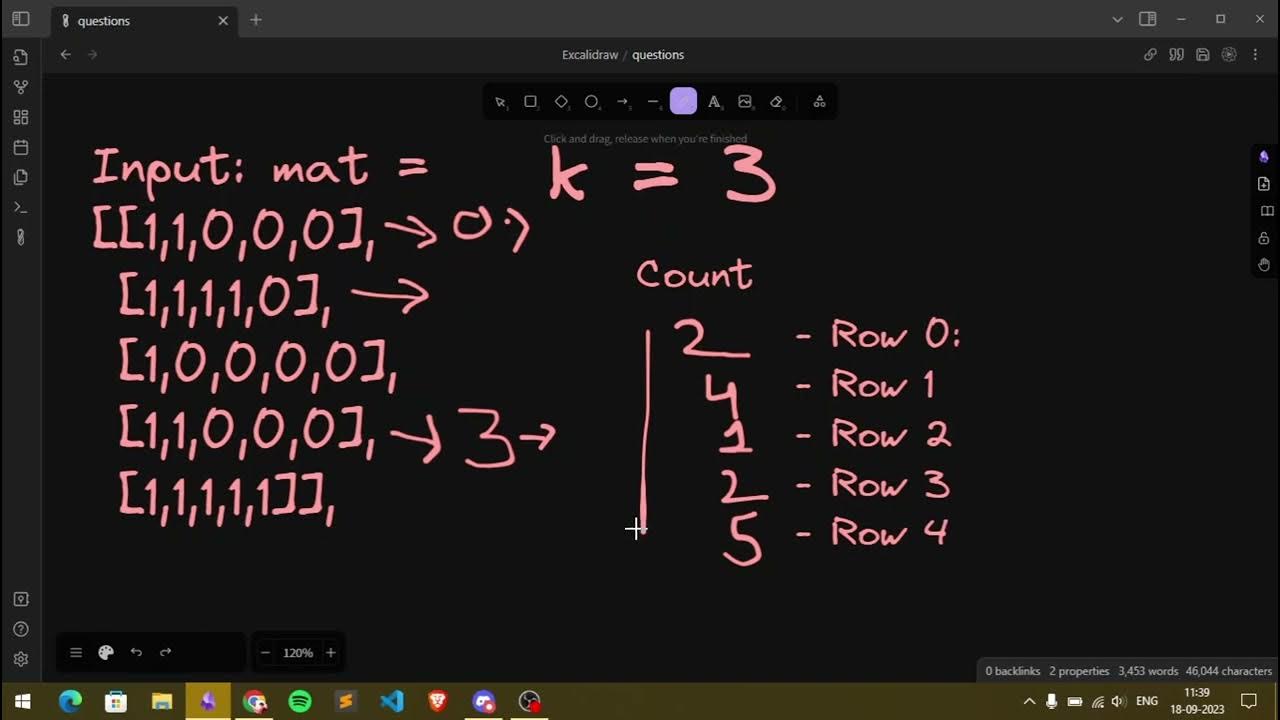 questions
Excalidraw / questions
Click and drag, release when you're finished
Input: mat =
k = 3
[[1,1,0,0,0], → 0 :)
[1,1,1,1,0], →
[1,0,0,0,0],
[1,1,0,0,0], → 3 →
[1,1,1,1,1]],
Count
2 - Row 0:
4 - Row 1
1 - Row 2
2 - Row 3
5 - Row 4
120%
0 backlinks 2 properties 3,453 words 46,044 characters
ENG
11:39
18-09-2023